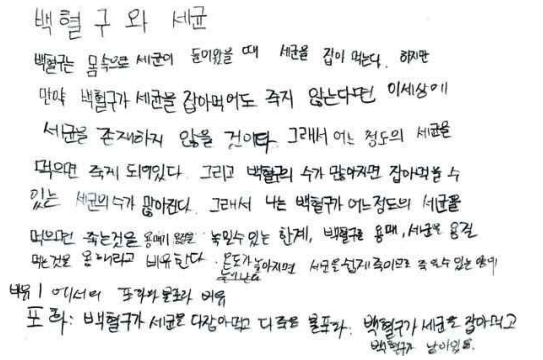 백혈구와 세균
백혈구는 몸속으로 세균이 들어왔을 때 세균을 잡아 먹는다. 하지만
만약 백혈구가 세균을 잡아먹어도 죽지 않는다면 이세상에
세균을 존재하지 않을 것이다. 그래서 어느 정도의 세균을
먹으면 죽게 되어있다. 그리고 백혈구의 수가 많아지면 잡아먹을 수
있는 세균의 수가 많아진다. 그래서 나는 백혈구가 어느정도의 세균을
먹으면 죽는것을 용매가 용질을 녹일수있는 한계, 백혈구를 용매, 세균을 용질
먹는것을 용해라고 비유한다. 온도가 높아지면 세균을 쉽게 죽이므로 죽일수있는 양이
늘어난다
비유 1 에서의 포화와 불포화 비유
포화: 백혈구가 세균을 다잡아먹고 다죽음 불포화: 백혈구가 세균을 잡아먹고
백혈구가 남아있음.